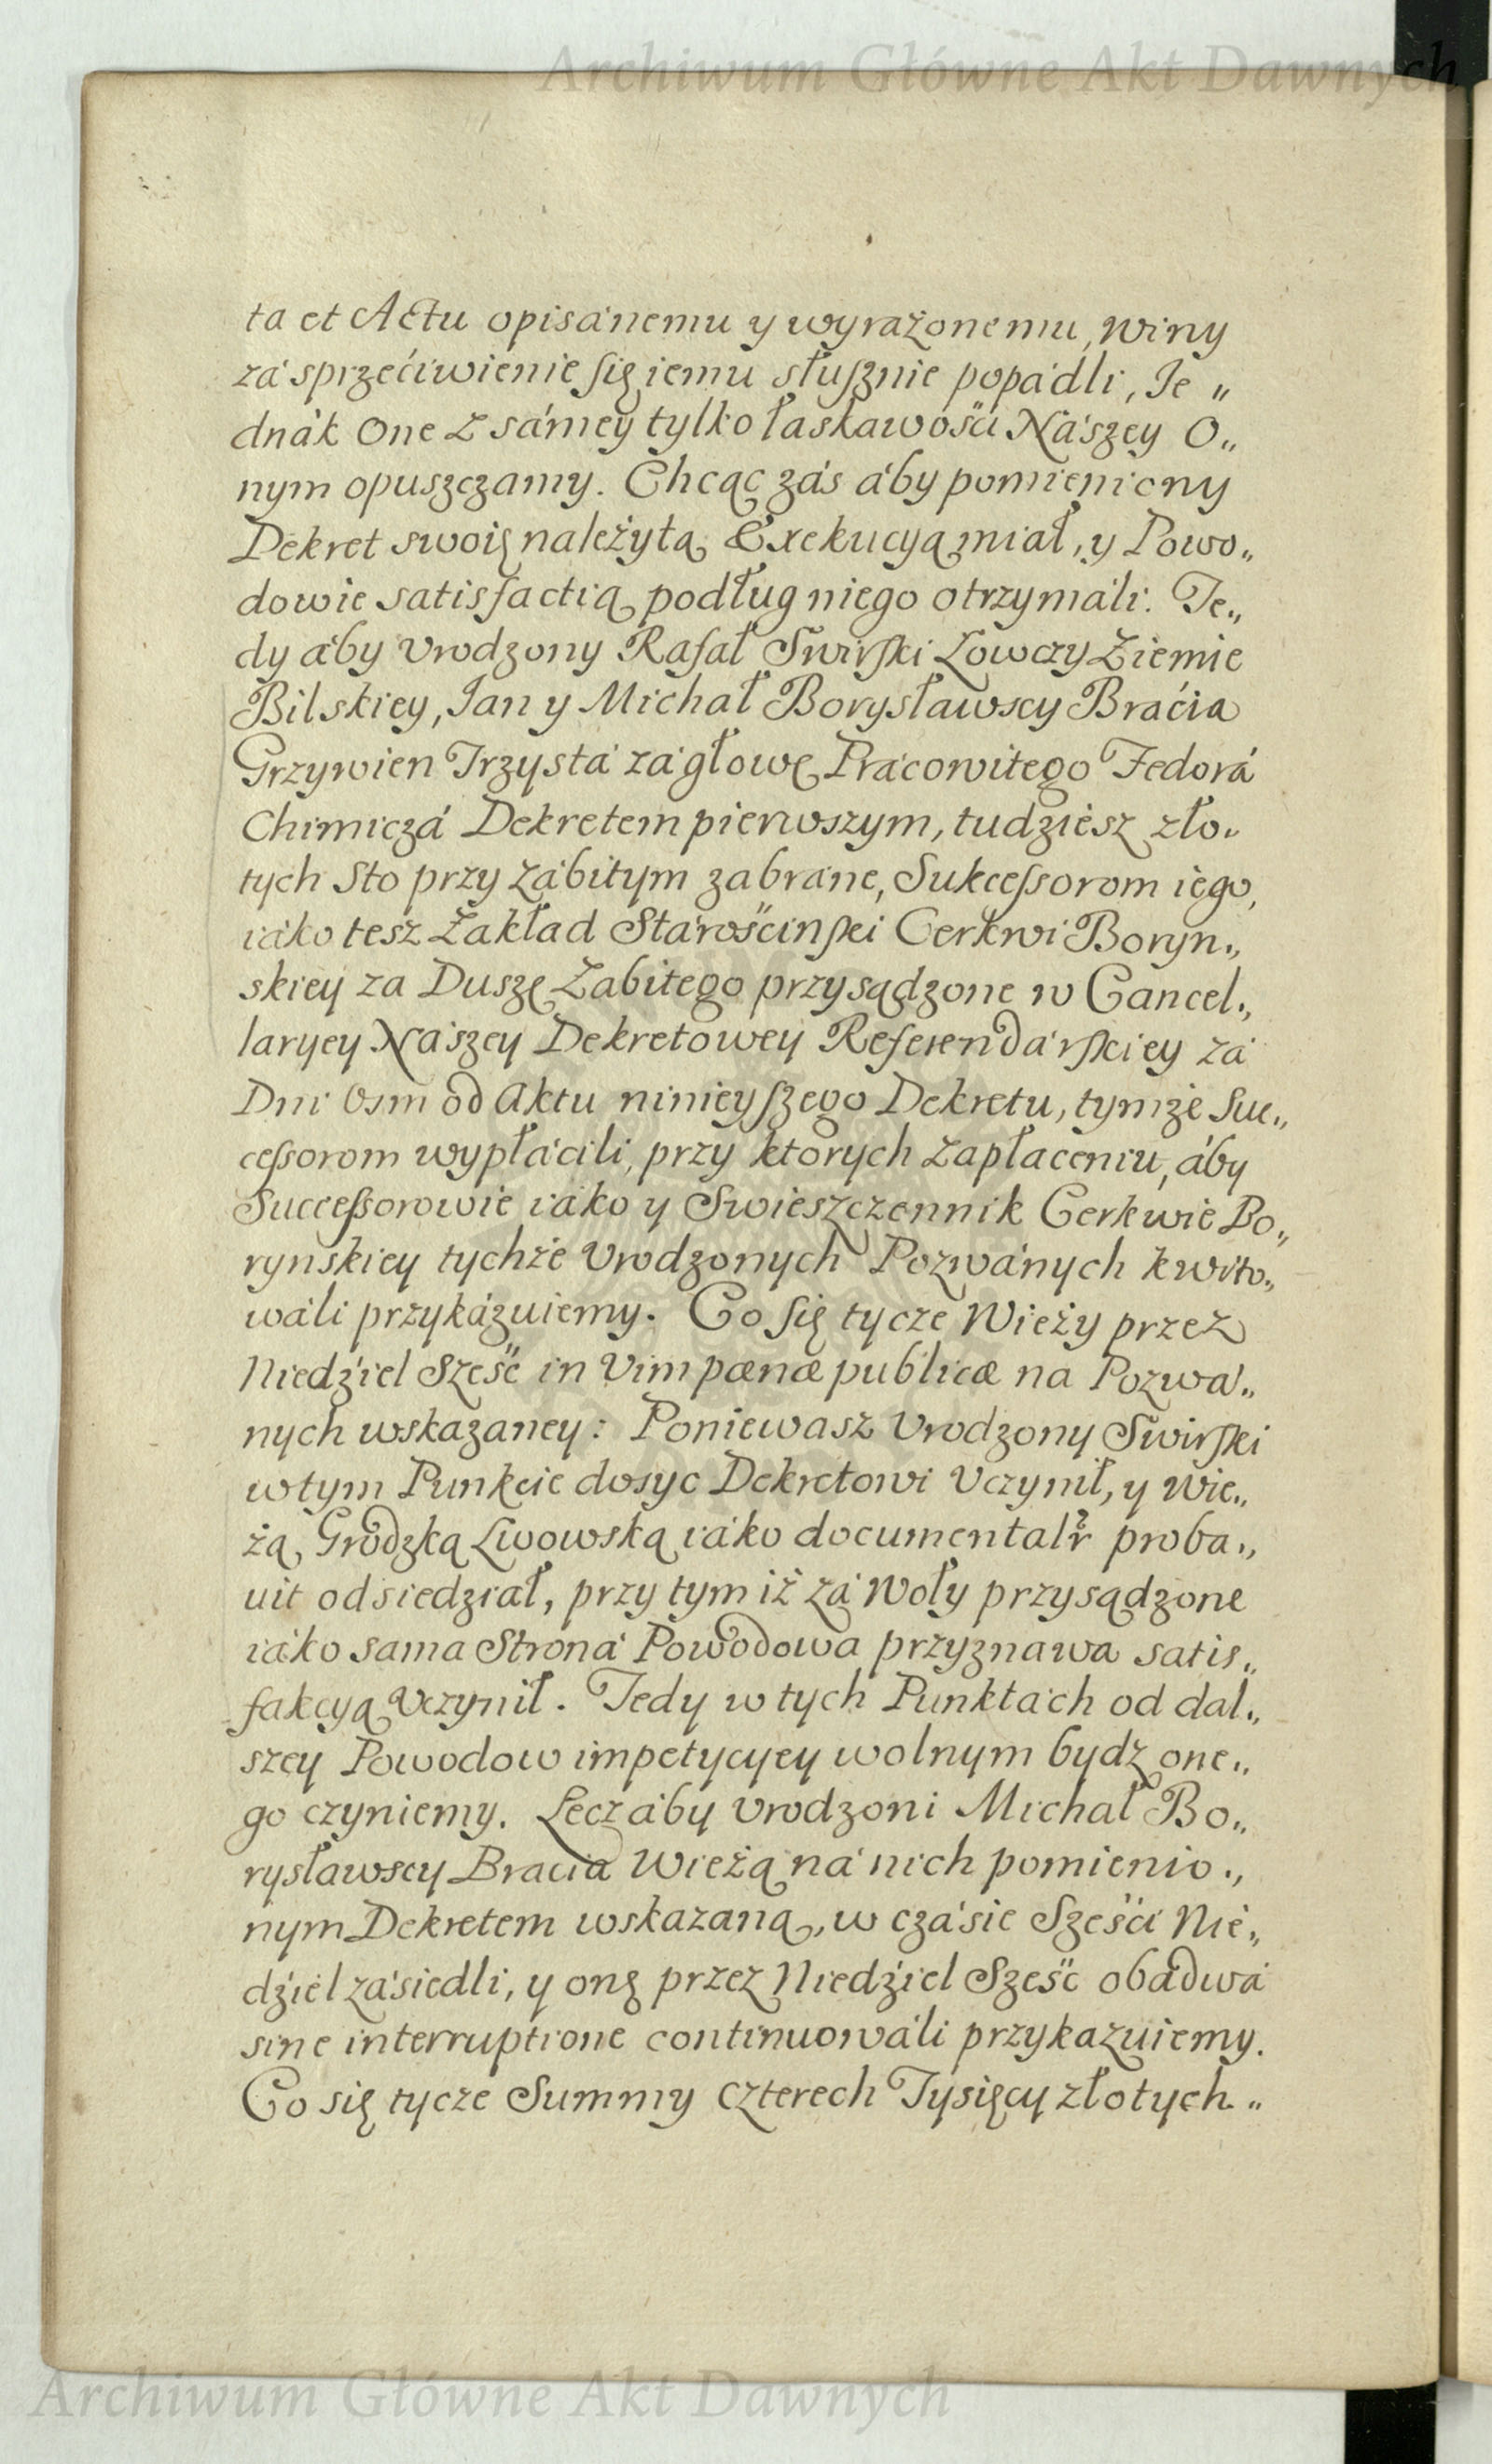 Archiwum Główne Akt Dawnych
ta et Actu opisánemu y wyrażonemu, winy
zá sprzećiwienie się iemu słusznie popádli, Je„
dnák one z sámey tylko łaskáwośći Nászey O„
nym opuszczamy. Chcąc záś áby pomieniony
Dekret swoię należytą Exekucyą miał, y Powo„
dowie satisfactią podług niego otrzymáli: Te„
dy áby Vrodzony Rafał Swirski Łowczy Ziemie
Bilskiey, Jan y Michał Borysławscy Braćia
Grzywien Trzystá zá głowę Prácowitego Fedorá
Chimiczá Dekretem pierwszym, tudziesz zło„
tych Sto przy zábitym zabráne, Sukcessorom iego,
iáko tesz Zakład Stárośćinski Cerkwi Boryn„
skiey za Duszę Zabitego przysądzone w Cancel„
laryey Nászey Dekretowey Referendárskiey zá
Dni Osm od Aktu ninieyszego Dekretu, tymże Suc„
cessorom wypłáćili, przy ktorych zapłaceniu, áby
Successorowie iáko y Swieszczennik Cerkwie Bo„
rynskiey tychże Vrodzonych Pozwánych kwito„
wáli przykázuiemy. Co się tycze Wieży przez
Niedźiel Sześć in Vim pænæ publicæ na Pozwá„
nych wskazaney: Poniewasz Vrodzony Swirski
w tym Punkcie dosyc Dekretowi Vczynił, y Wie„
żą Grodzką Lwowską iáko documentalr̃ proba„
uit odsiedział, przy tym iż zá Woły przysądzone
iáko sama Stroná Powodowa przyznawa satis„
fakcyą Vczynił. Tedy w tych Punktách od dal„
szey Powodow impetycyey wolnym bydz one„
go czyniemy. Lecz áby Vrodzoni Michał Bo„
rysławscy Bracia Wieżą ná nich pomienio„
nym Dekretem wskazaną, w czásie Sześći Nie„
dźiel zásiedli, y onę przez Niedźiel Sześć obádwá
sine interruptione continuowáli przykazuiemy.
Co się tycze Summy Czterech Tysięcy złotych„
Archiwum Główne Akt Dawnych